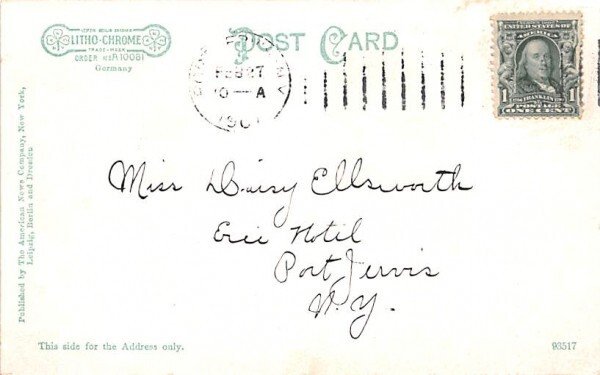 LITHO-CHROME
TRADE-MARK
ORDER No A 10081
Germany
POST CARD
FEB 27
A
UNITED STATES OF
AMERICA
FRANKLIN
POSTAGE
1
ONE CENT
Miss Daisy Ellsworth
Erie Hotel
Port Jervis
N.Y.
Published by The American News Company, New York,
Leipzig, Berlin and Dresden
This side for the Address only.
93517